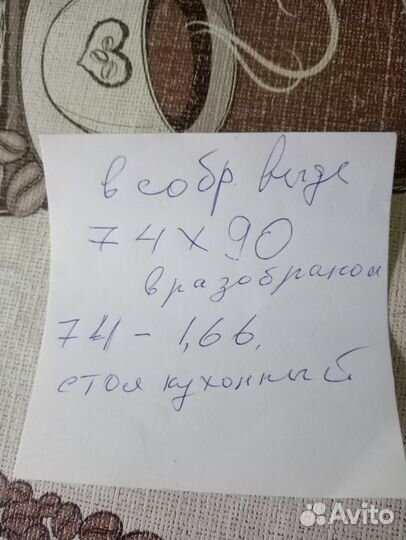 в собр виде
74 х 90
в разобраном
74 - 1,66.
стол кухонный
Avito